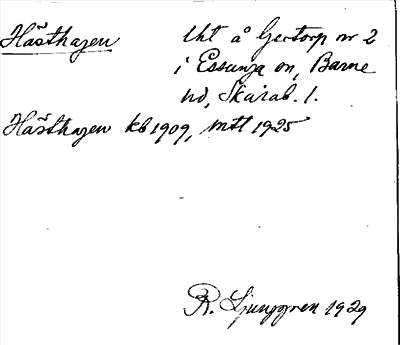 Hästhagen
Uht å Gertorp nr 2
i Essunga sn, Barne
hd, Skarab. l.
Hästhagen kb 1909, mtl 1925
R. Ljunggren 1929